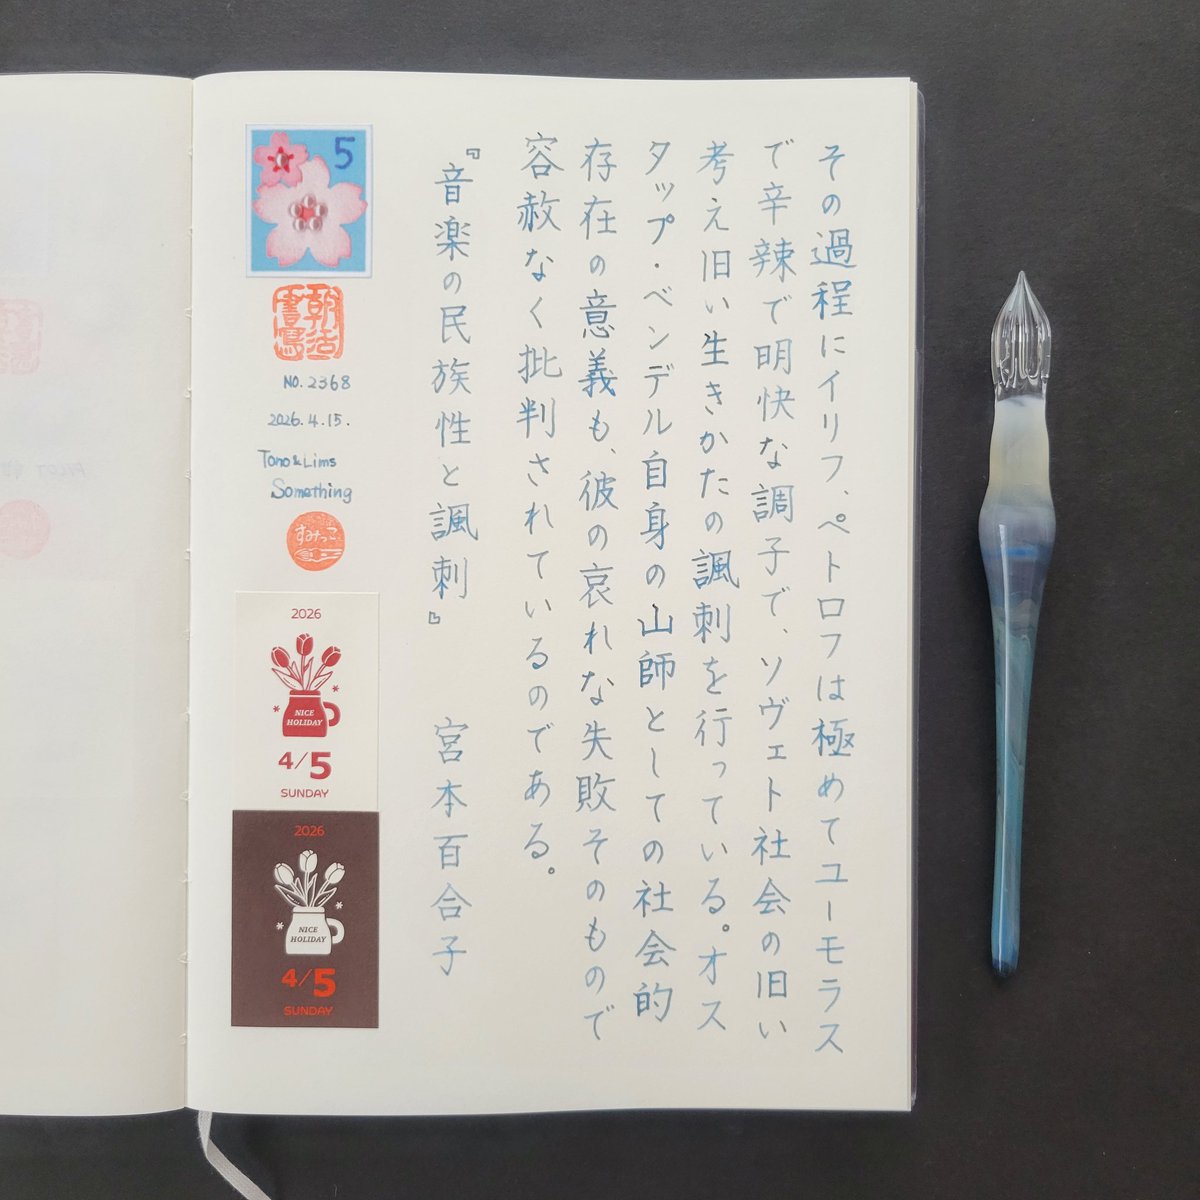 その過程にイリフ、ペトロフは極めてユーモラス
で辛辣で明快な調子で、ソヴェト社会の旧い
考え旧い生きかたの諷刺を行っている。オス
タップ・ベンデル自身の山師としての社会的
存在の意義も、彼の哀れな失敗そのもので
容赦なく批判されているのである。
『音楽の民族性と諷刺』 宮本百合子
5
朝活書写
NO.2368
2026.4.15.
Tono&Lims
Something
すみっこ
2026
NICE
HOLIDAY
4/5
SUNDAY
2026
NICE
HOLIDAY
4/5
SUNDAY